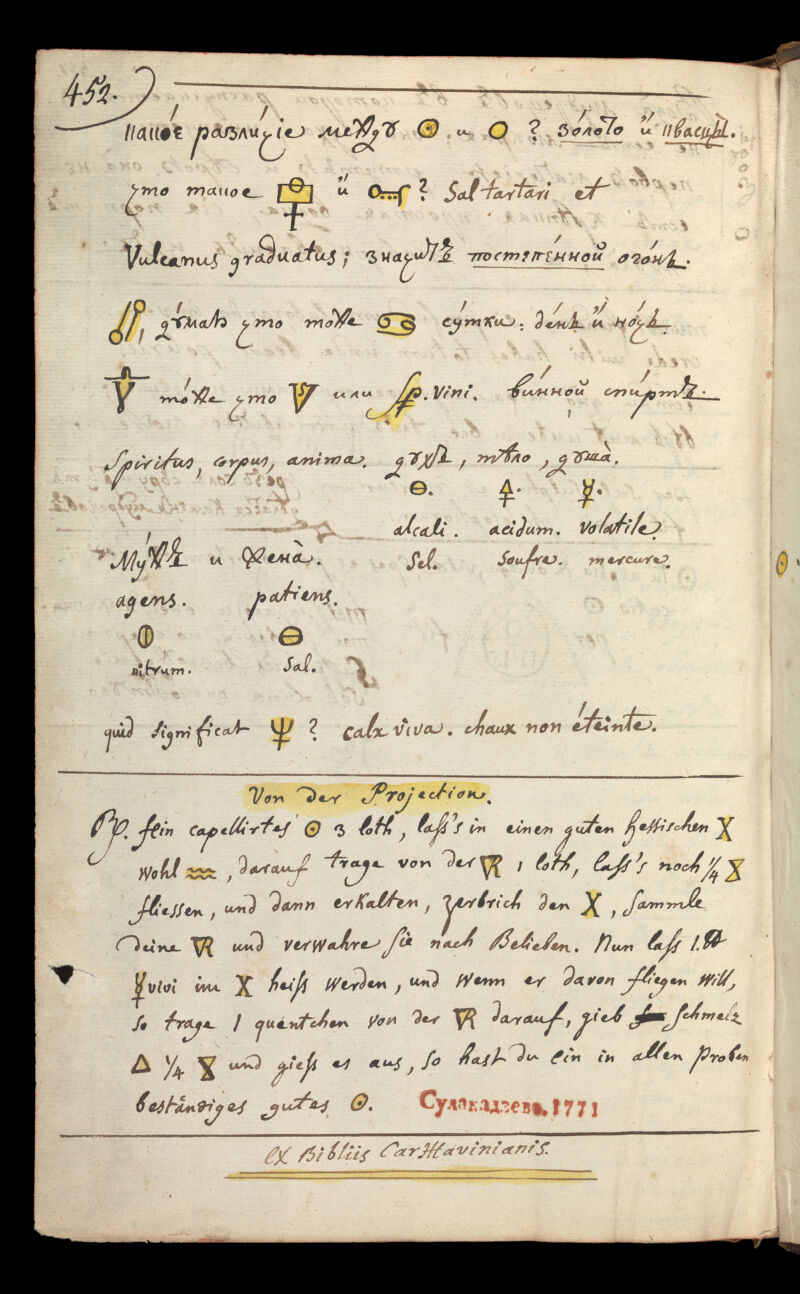 452.
какóе разли́чiе между ☉ и ○ ? зóлото и квасцы.
что такое и ? Sal tartari et
Vulcanus graduatus; значитъ постепéнной огóнь.
, ду́маю что тоже ♋ су́тки: дéнь и нóчь.
тóже что или Sp. Vini. ви́нной спи́ртъ.
Spiritus, corpus, anima. духъ, тѣло, душà.
🜔. 🜍. ☿.
alcali. acidum. volatile.
Му́жъ и женà. Sel. Soufre. mercure.
agens. patiens.
⦶ ⊖
nitrum. Sal.
quid significat ? calx viva. chaux non éteinte.
Von der Projection.
Rp. fein capellirtes ☉ 3 loth, laß's in einen guten hessischen
wohl ♒, darauf trage von der 1 loth, laß's noch 1/4
fliessen, und dann erkalten, zerbrich den , sammle
deine und verwahre sie nach Belieben. Nun laß 1 ℔
☿ vivi im heiß werden, und wenn er davon fliegen will,
so trage 1 quentchen von der darauf, gieb schmelz
△ 1/4 und gieß es aus, so hast du ein in allen Proben
beständiges gutes ☉. Сулакадзева. 1771
ex Bibliis Carthavinianis.